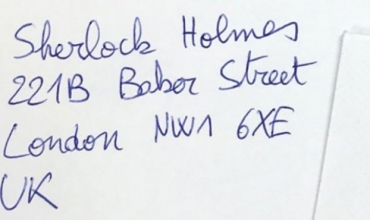 Sherlock Holmes
221B Baker Street
London NW1 6XE
UK